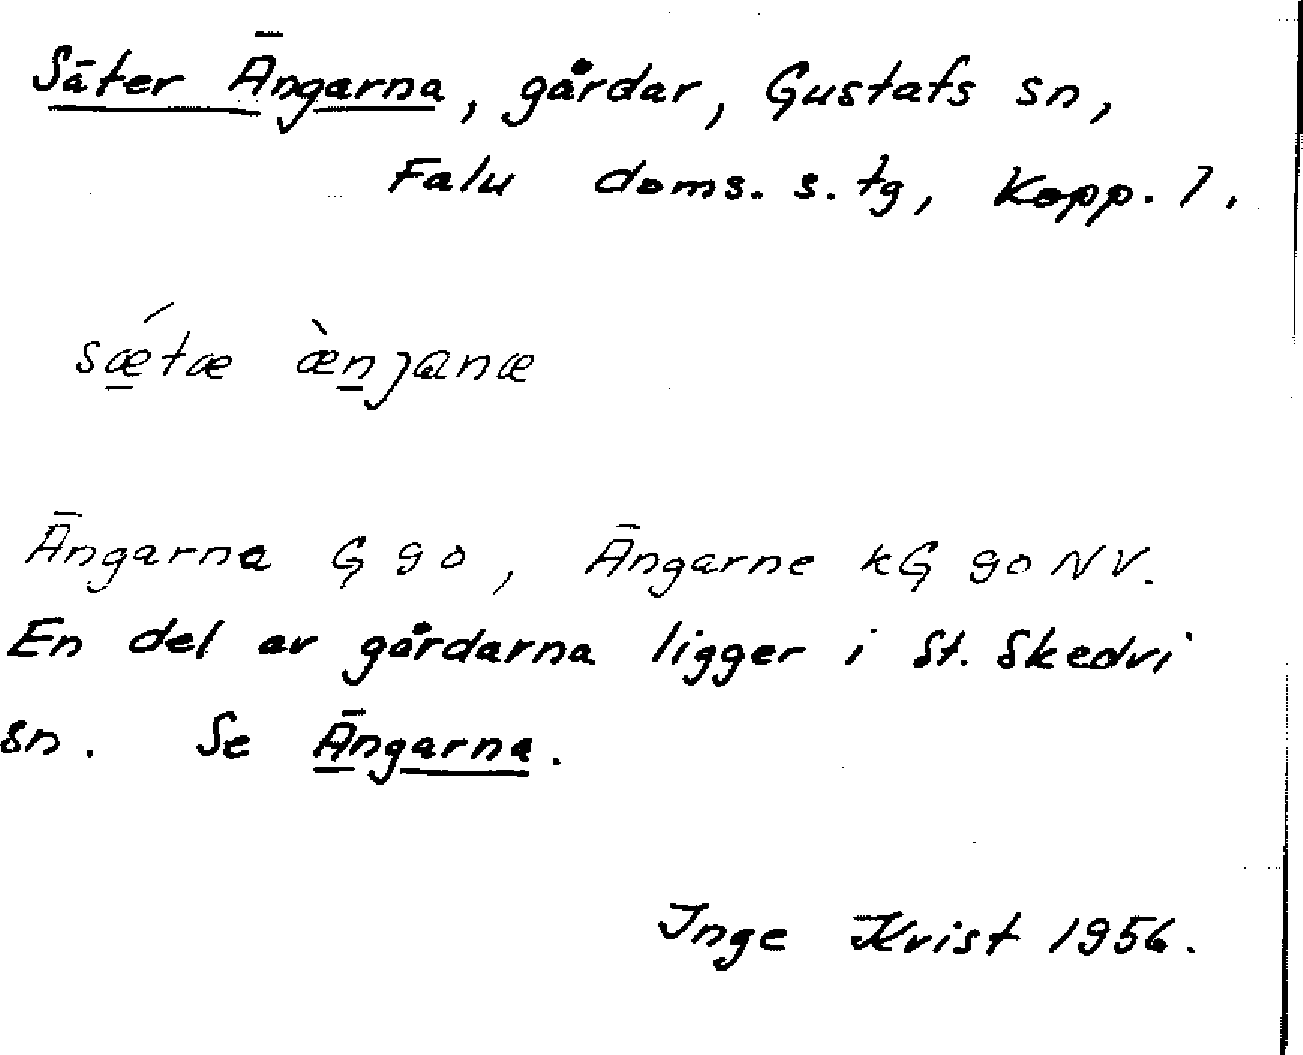 Säter Ängarna, gårdar, Gustafs sn,
Falu doms. s. tg, Kopp. l.
sǽtæ æ̀nɟanæ
Ängarna G 90, Ängarne kG 90 NV.
En del av gårdarna ligger i St. Skedvi
sn. Se Ängarna.
Inge Kvist 1956.